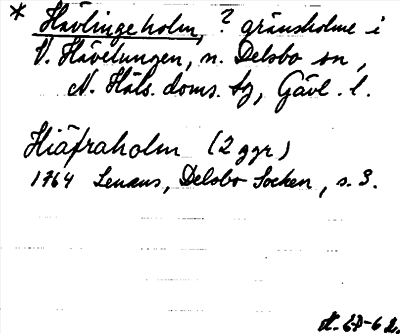 * Hävlingeholm, ? gränsholme i
V. Hävelungen, n. Delsbo sn,
N. Häls. doms. tg, Gävl. l.
Hiäfraholm (2 ggr)
1764 Lenæus, Delsbo Socken, s. 3.